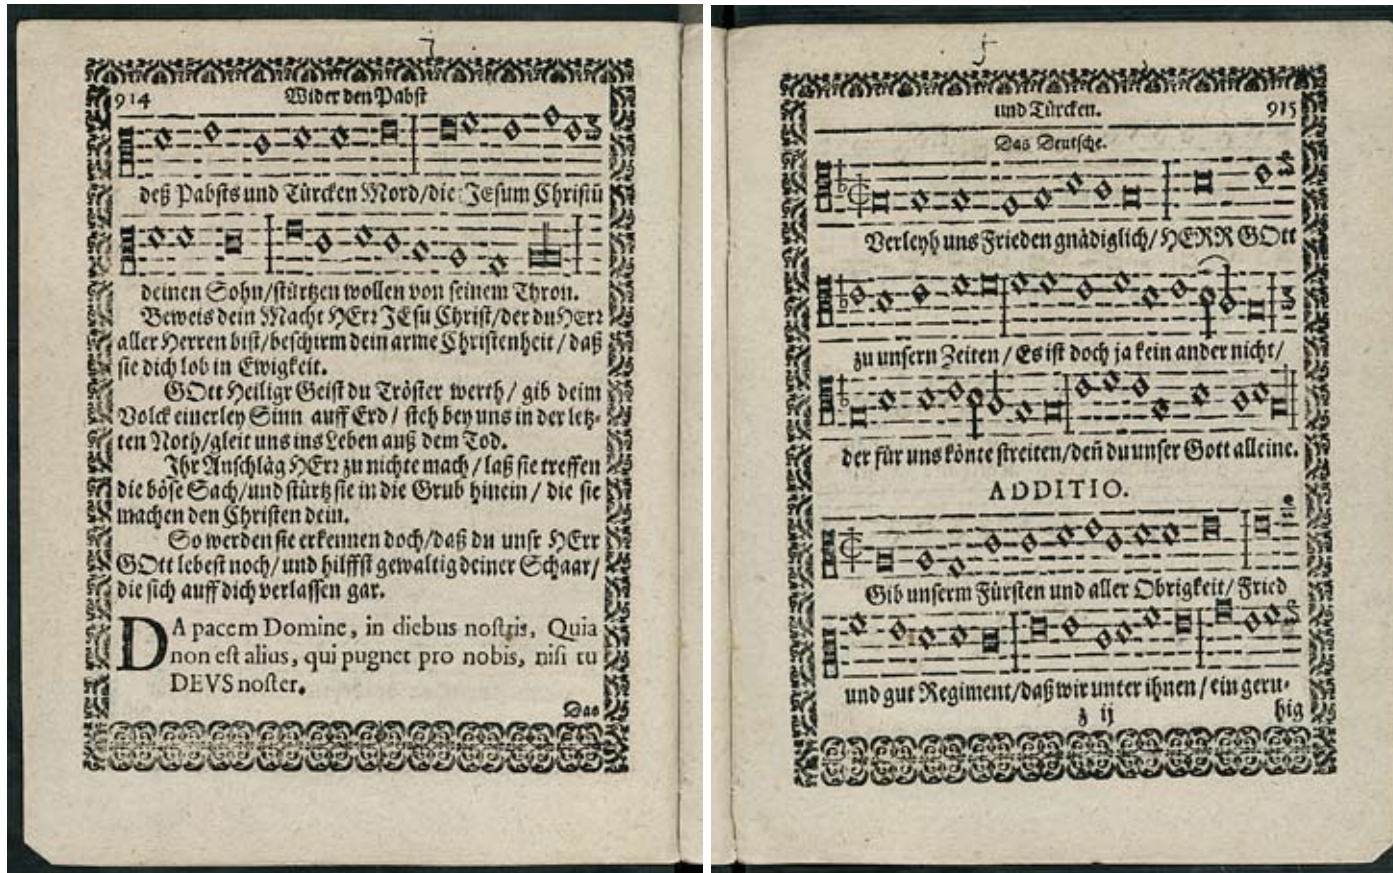 914 Wider den Pabst
deß Pabsts und Türcken Mord/die JEsum Christū
deinen Sohn/stürtzen wollen von seinem Thron.
Beweis dein Macht HErr JEsu Christ/der du HErr
aller Herren bist/beschirm dein arme Christenheit/daß
sie dich lob in Ewigkeit.
GOtt Heiligr Geist du Tröster werth/gib deim
Volck einerley Sinn auff Erd/steh bey uns in der letz-
ten Noth/gleit uns ins Leben auß dem Tod.
Ihr Anschläg HErr zu nichte mach/laß sie treffen
die böse Sach/und stürtz sie in die Grub hinein/die sie
machen den Christen dein.
So werden sie erkennen doch/daß du unsr HErr
GOtt lebest noch/und hilffst gewaltig deiner Schaar/
die sich auff dich verlassen gar.
DA pacem Domine, in diebus nostris, Quia
non est alius, qui pugnet pro nobis, nisi tu
DEVS noster.
Das
und Türcken. 915
Das Deutsche.
Verleyh uns Frieden gnädiglich/HERR GOtt
zu unsern Zeiten/Es ist doch ja kein ander nicht/
der für uns könte streiten/deñ du unser Gott alleine.
ADDITIO.
Gib unserm Fürsten und aller Obrigkeit/Fried
und gut Regiment/daß wir unter ihnen/ein geru-
z ij hig